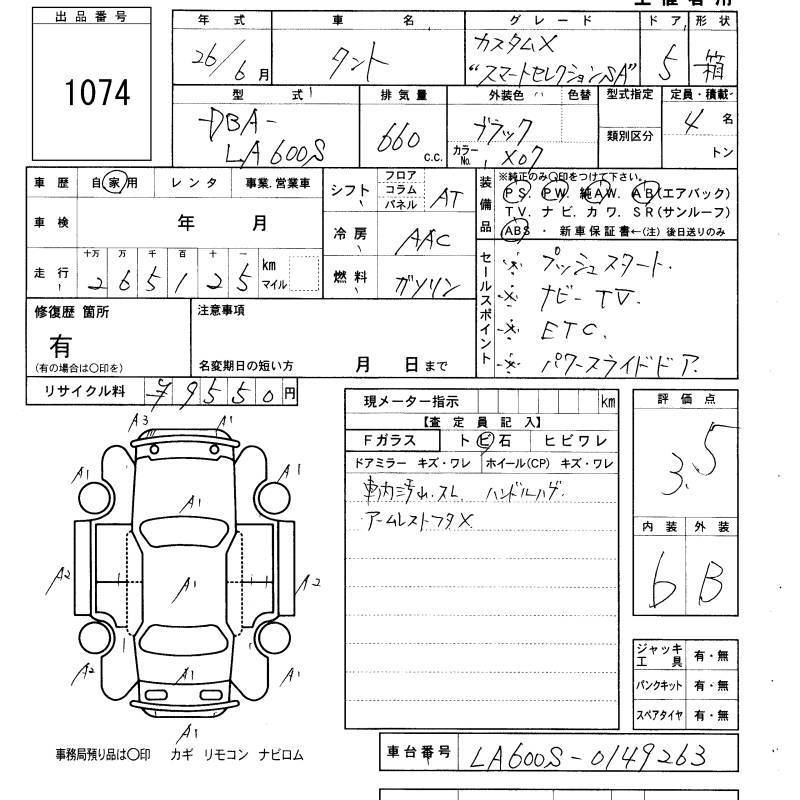 出品番号
1074
年式
26/6月
車名
タント
グレード
カスタムX
"スマートセレクションSA"
ドア
5
形状
箱
型式
-DBA-
LA600S
排気量
660
c.c.
外装色
色替
ブラック
カラーNo.
X07
型式指定
類別区分
定員・積載
4名
トン
車歴
自家用
レンタ
事業.営業車
車検
年 月
走行
十万 万 千 百 十 一
265125
km
マイル
シフト
フロア
コラム
パネル
AT
冷房
AAC
燃料
ガソリン
装備品
※純正のみ〇印をつけて下さい。
PS. PW. 純AW. AB(エアバック)
TV. ナビ. カワ. SR(サンルーフ)
ABS ・ 新車保証書←(注) 後日送りのみ
セールスポイント
※ プッシュスタート.
※ ナビー TV.
※ ETC.
※ パワースライドドア.
修復歴 箇所
有
(有の場合は〇印を)
注意事項
名変期日の短い方
月 日まで
リサイクル料
¥9550円
現メーター指示
km
【査定員記入】
Fガラス
トビ石
ヒビワレ
ドアミラー キズ・ワレ
ホイール(CP) キズ・ワレ
車内汚れ.スレ ハンドルハゲ.
アームレストフタX
評価点
3.5
内装
外装
b
B
A3
A1
A1
A1
A1
A2
A1
A2
A1
A2
A1
A1
A1
事務局預り品は〇印 カギ リモコン ナビロム
ジャッキ
工具
有・無
パンクキット
有・無
スペアタイヤ
有・無
車台番号
LA600S-0149263